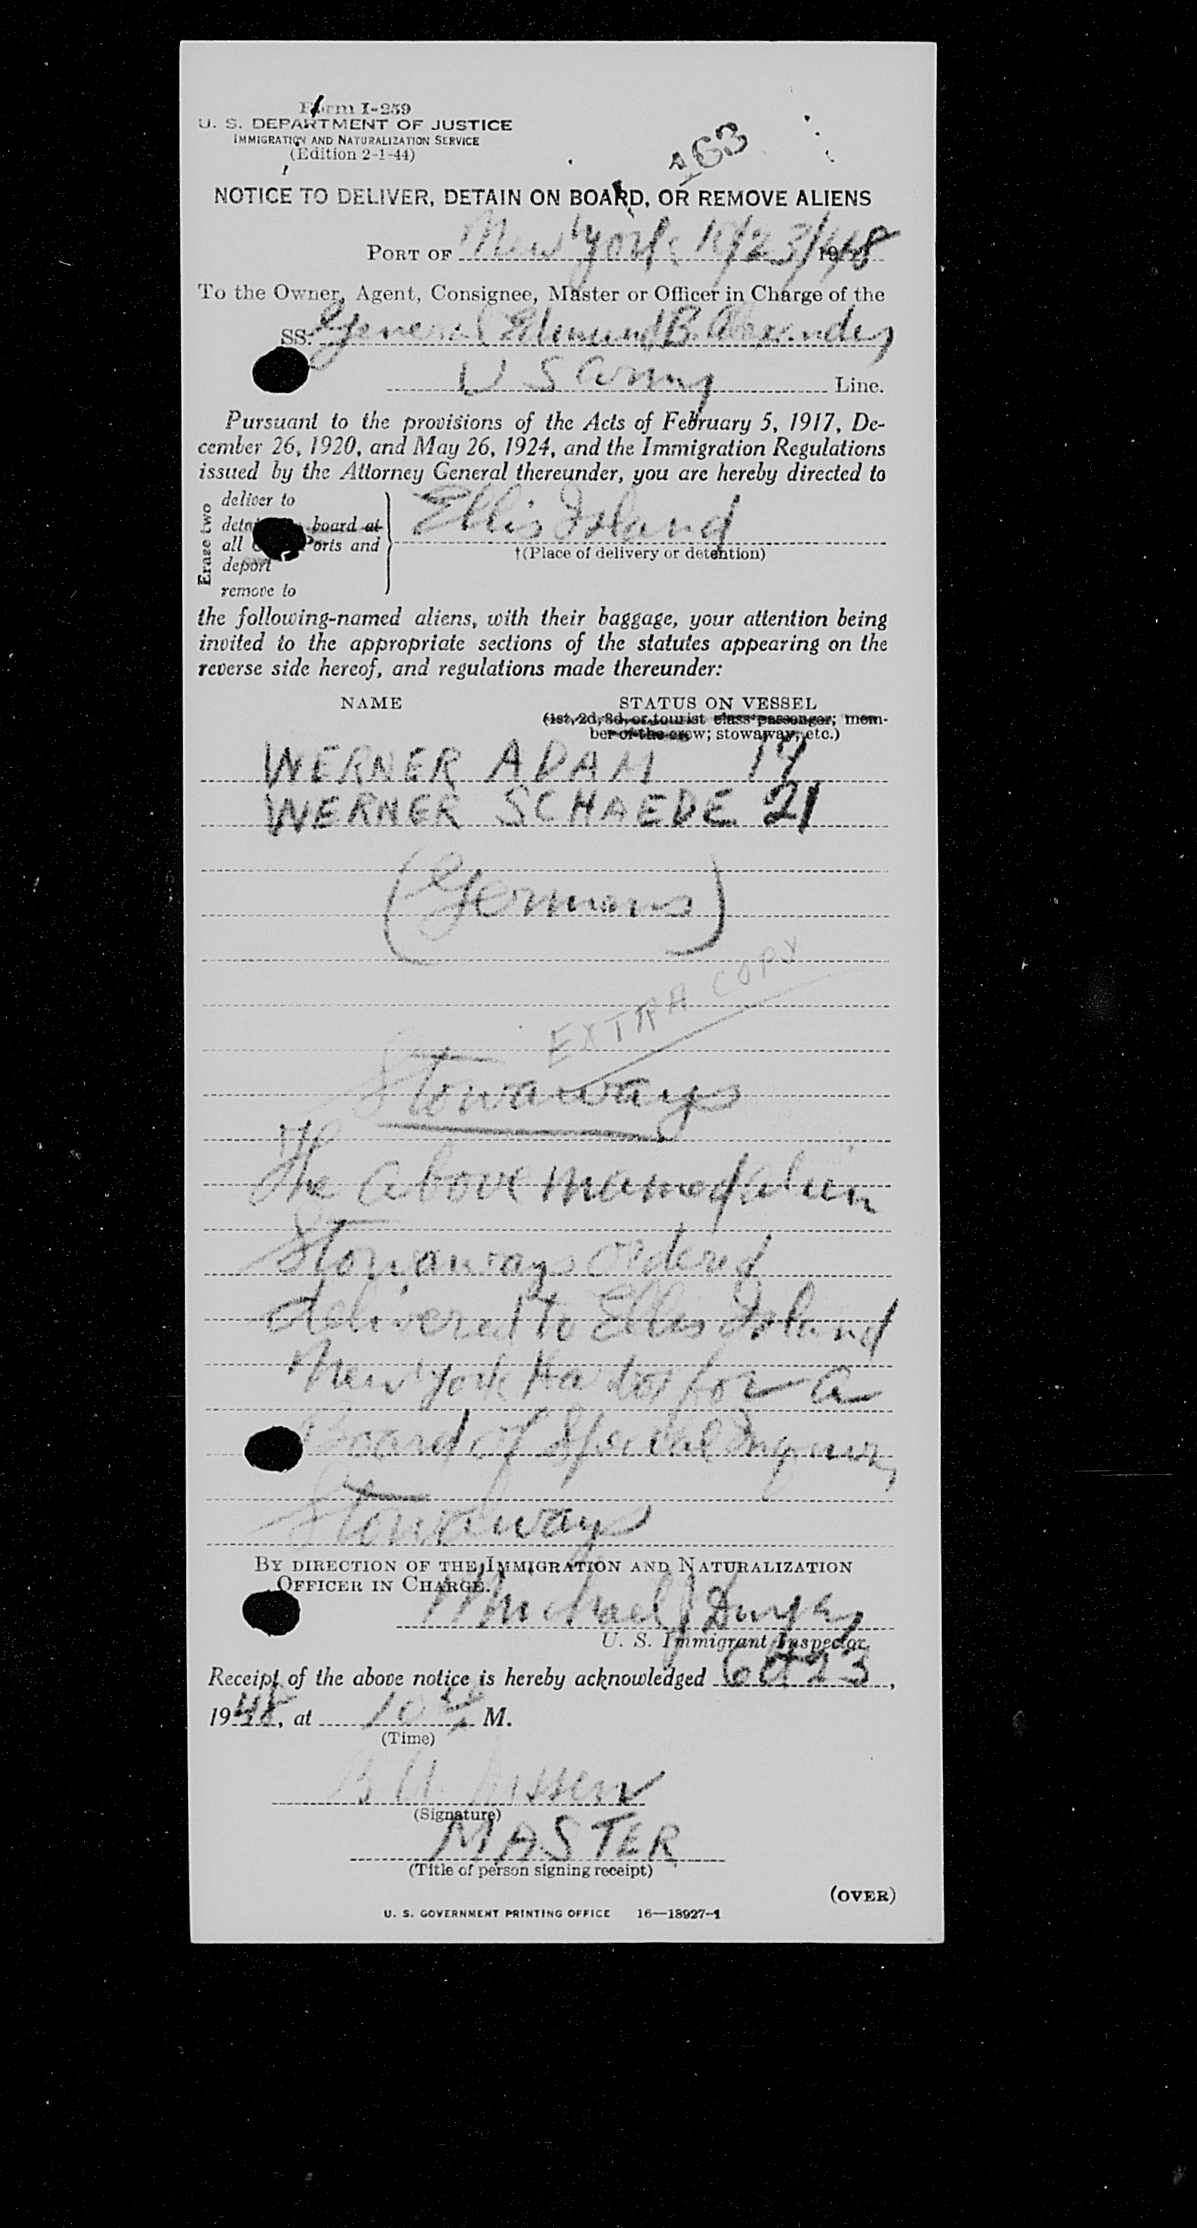 Form I-259
U. S. DEPARTMENT OF JUSTICE
IMMIGRATION AND NATURALIZATION SERVICE
(Edition 2-1-44)
163
NOTICE TO DELIVER, DETAIN ON BOARD, OR REMOVE ALIENS
PORT OF New York 10/23/48
To the Owner, Agent, Consignee, Master or Officer in Charge of the
SS. General Edmund B. Alexander,
U S Army Line.
Pursuant to the provisions of the Acts of February 5, 1917, De-
cember 26, 1920, and May 26, 1924, and the Immigration Regulations
issued by the Attorney General thereunder, you are hereby directed to
Erase two
deliver to
board at
all Ports and
deport
remove to
Ellis Island
†(Place of delivery or detention)
the following-named aliens, with their baggage, your attention being
invited to the appropriate sections of the statutes appearing on the
reverse side hereof, and regulations made thereunder:
NAME STATUS ON VESSEL
(1st, 2d, 3d, or tourist class passenger; mem-
ber of the crew; stowaway, etc.)
WERNER ADAM 19
WERNER SCHAEDE 21
(Germans)
EXTRA COPY
Stowaways
The above named alien
Stowaways ordered
delivered to Ellis Island
New York Harbor for a
Board of Special Inquiry,
Stowaways
BY DIRECTION OF THE IMMIGRATION AND NATURALIZATION
OFFICER IN CHARGE.
Michael J
U. S. Immigrant Inspector.
Receipt of the above notice is hereby acknowledged 23,
1948, at 10 M.
(Time)
(Signature)
MASTER
(Title of person signing receipt)
(OVER)
U. S. GOVERNMENT PRINTING OFFICE 16—13927-1